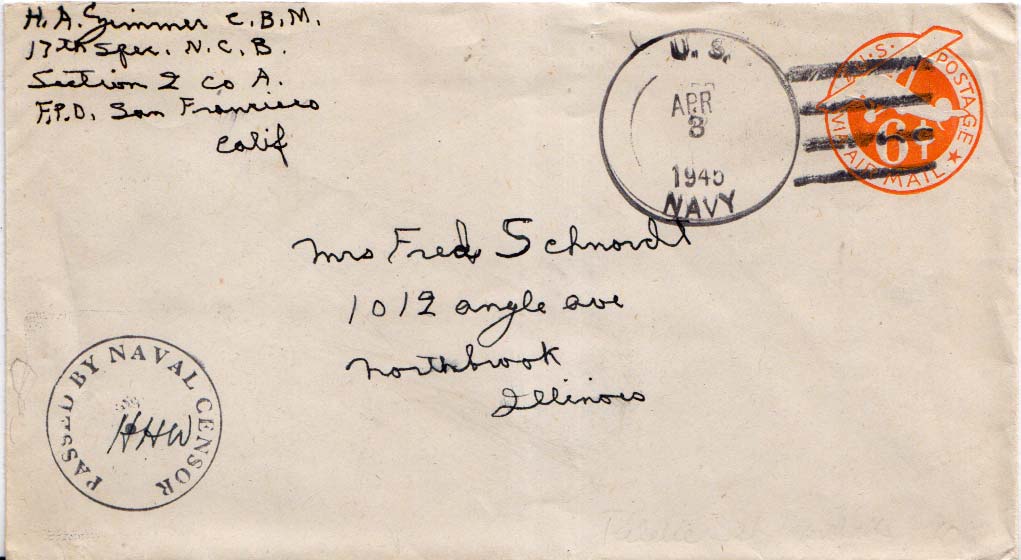 H. A. Zimmer C. B. M.
17th Spec. N. C. B.
Section 2 Co A.
F.P.O. San Francisco
Calif
U. S.
APR
3
1945
NAVY
U.S. POSTAGE
VIA AIR MAIL
6¢
Mrs Fred Schnordt
1012 angle ave
Northbrook
Illinois
PASSED BY NAVAL CENSOR
HHW